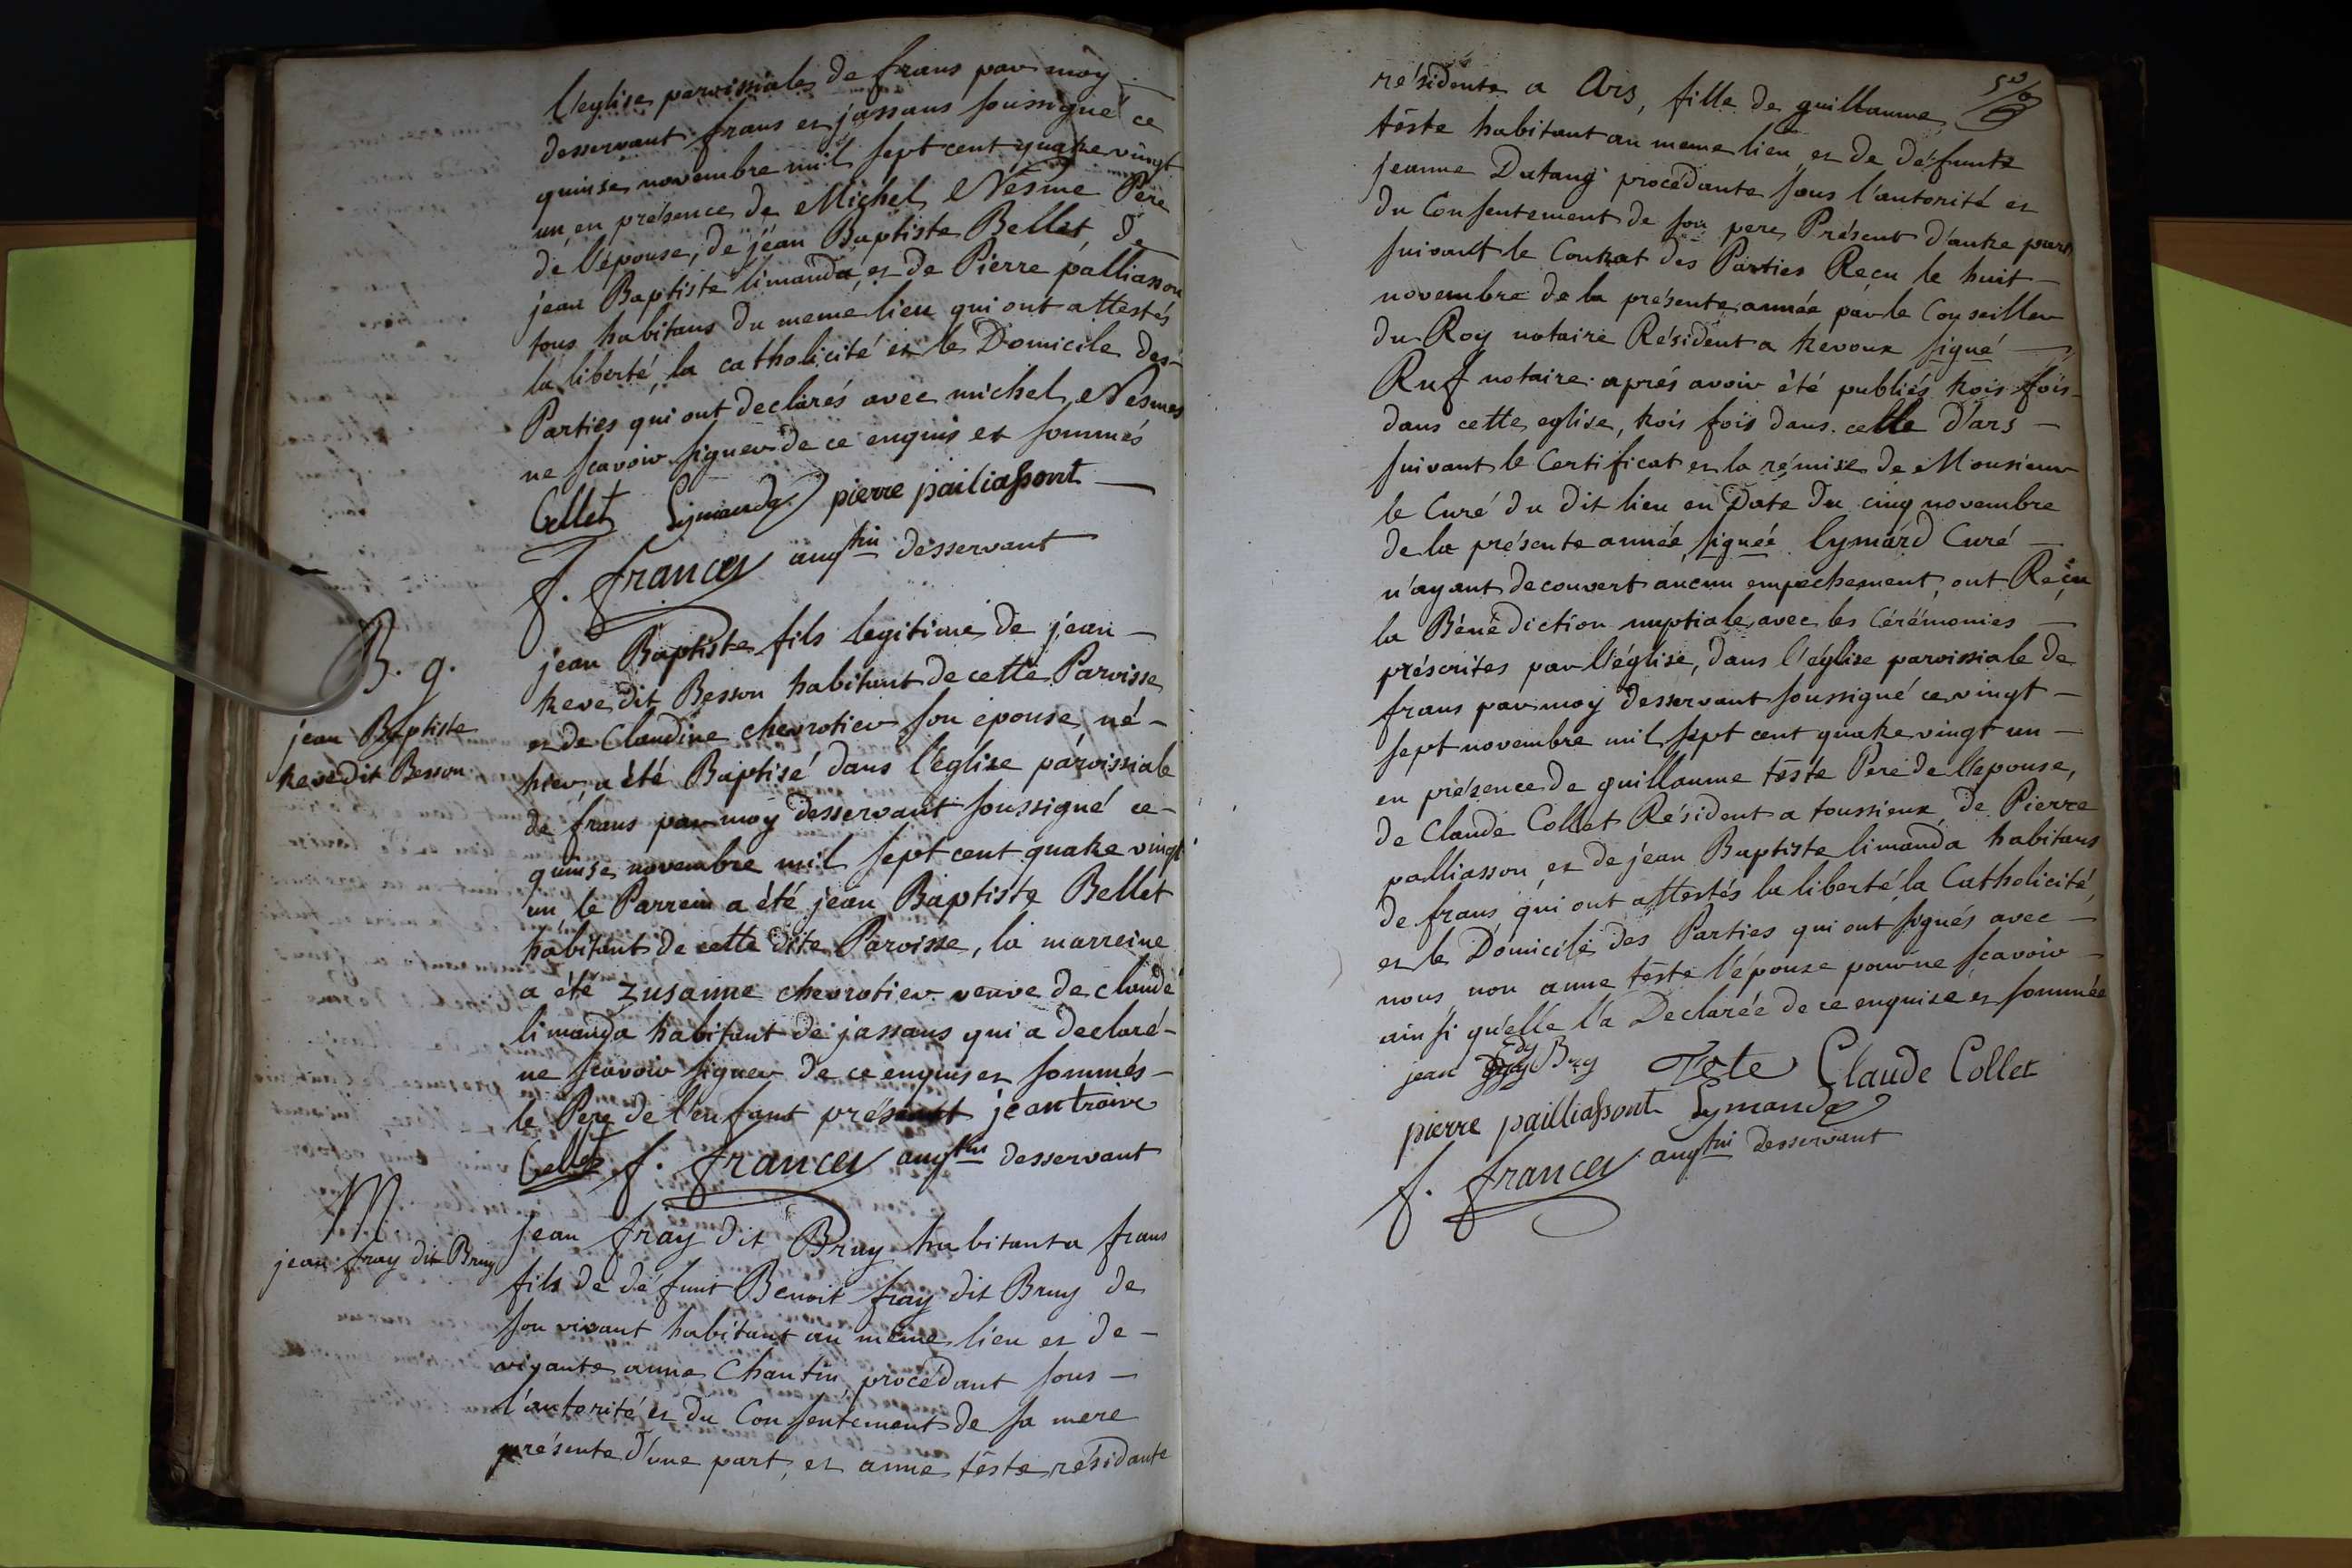 l'eglise paroissiale de frans par moy
desservant frans et jassans soussigné ce
quinse novembre mil sept cent quatre vingt
un, en présence de Michel Nésme Pere
de l'épouse, de jean Baptiste Bellet, de
jean Baptiste limanda, et de Pierre palliasson
tous habitans du meme lieu qui ont attestés
la liberté, la catholicité et le Domicile des
Parties qui ont declarés avec michel Nesme
ne scavoir signer de ce enquis et sommés
Bellet Lymanda pierre pailiassont
f. francès augtin desservant
B. 9.
jean Baptiste
treve dit Besson
jean Baptiste fils legitime de jean
treve dit Besson habitant de cette Paroisse
et de Claudine chevrotier son épouse, né
hier, a été Baptisé dans l'église paroissiale
de frans par moy desservant soussigné ce
quinse novembre mil sept cent quatre vingt
un, le Parrein a été jean Baptiste Bellet
habitant de cette dite Paroisse, la marreine
a été zusanne chevrotier veuve de claude
limanda habitant de jassans qui a declaré
ne scavoir signer de ce enquis et sommés
le Pere de l'enfant présent jean traive
Bellet f. francès augtin desservant
M.
jean fray dit Bruy
jean fray dit Bruy habitant a frans
fils de défunt Benoit fray dit Bruy de
son vivant habitant au même lieu et de
vivante anne Chantin, procédant sous
l'autorité et du Consentement de sa mere
présente d'une part, et anne téste résidante
résidente a Ars, fille de guillaume
téste habitant au meme lieu et de défunte
jeanne Datang procédante sous l'autorité et
du Consentement de son pere Présent d'autre part
suivant le Contrat des Parties Reçu le huit
novembre de la présente année par le Conseiller
du Roy notaire Résident a trevoux signé
Ruf notaire. aprés avoir été publiés trois fois
dans cette eglise, trois fois dans celle d'ars
suivant le Certificat et la rémise de Monsieur
le Curé du dit lieu en Date du cinq novembre
de la présente année, signée lymard Curé
n'ayant decouvert aucun empechement, ont Reçu
la Bénédiction nuptiale avec les Cérémonies
préscrites par l'église, dans l'église paroissiale de
frans par moy desservant soussigné ce vingt
sept novembre mil sept cent quatre vingt un
en présence de guillaume téste Pere de l'epouse,
de Claude Collet Résident a toussieux, de Pierre
palliasson et de jean Baptiste limanda habitans
de frans qui ont attestés la liberté, la Catholicité,
et le Domicile des Parties qui ont signés avec
nous non anne téste l'épouse pour ne scavoir
ainsi qu'elle l'a Declarée de ce enquise et sommée
jean Bry Tete Claude Collet
pierre pailliassont Lymanda
f. francès augtin desservant